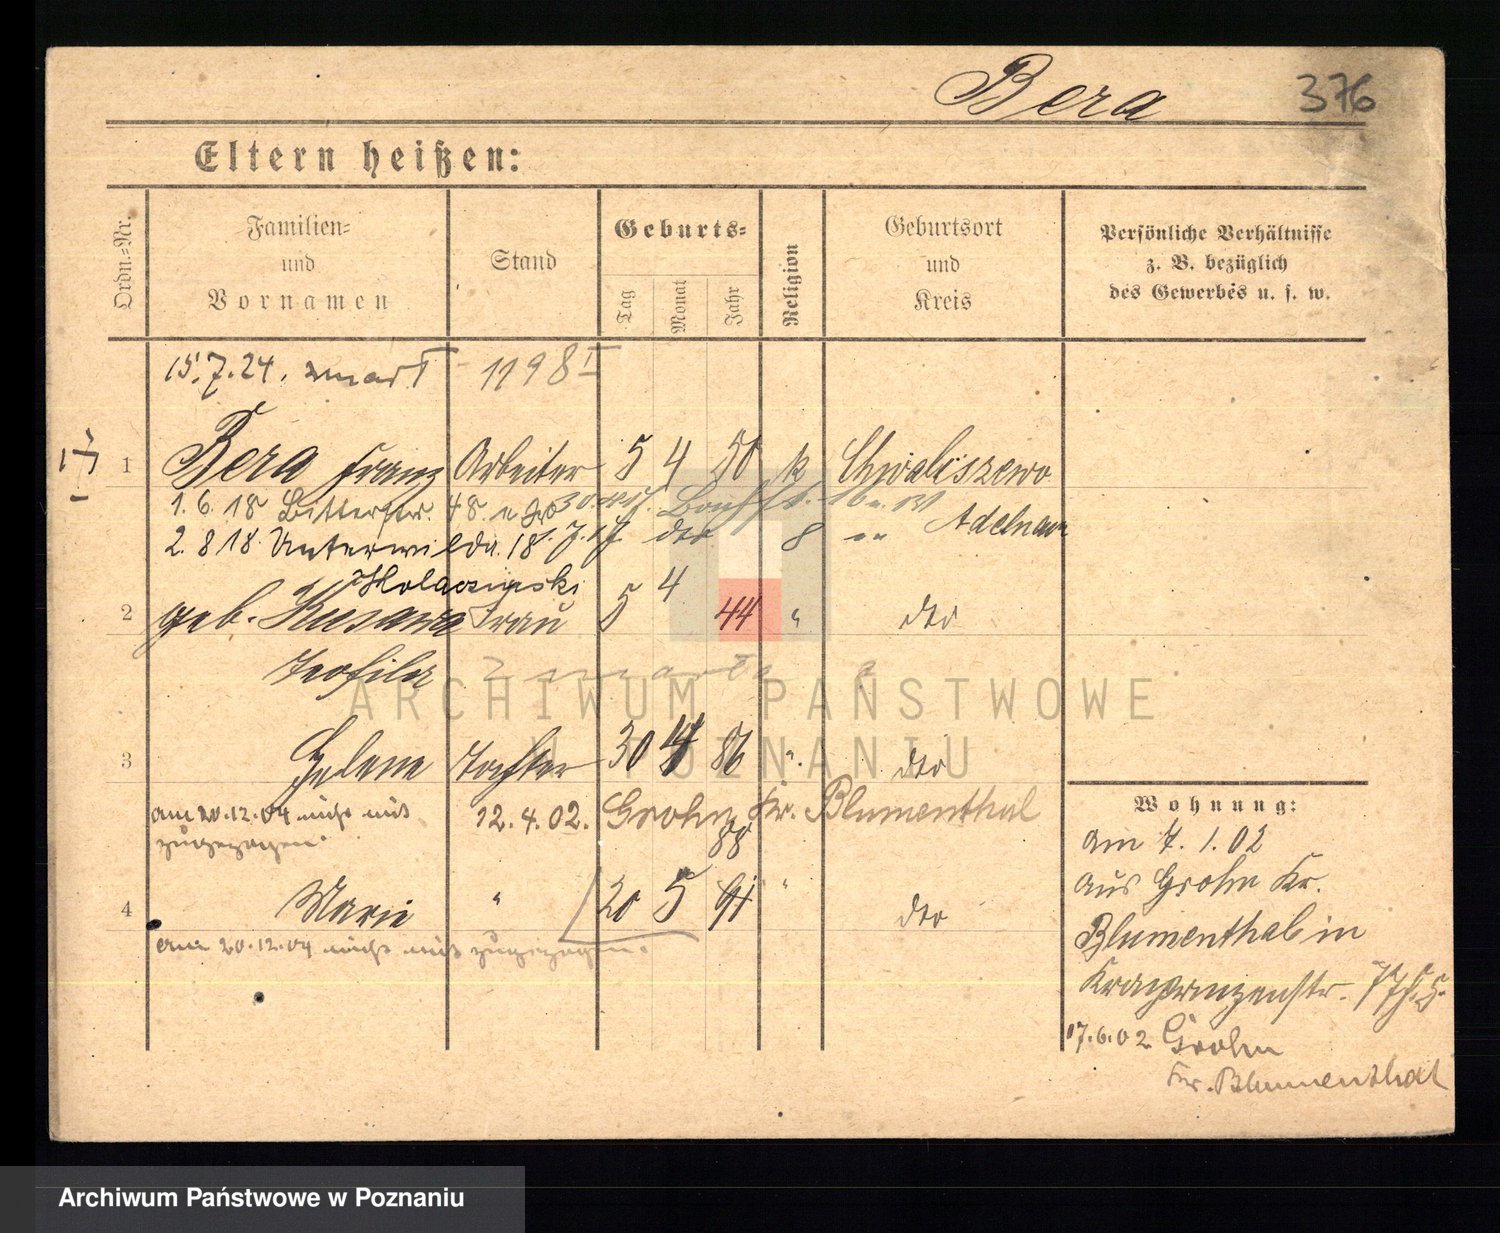 Bera 376
Eltern heißen:
Ordn.-Nr.
Familien- und Vornamen
Stand
Geburts-
Tag
Monat
Jahr
Religion
Geburtsort und Kreis
Persönliche Verhältnisse z. B. bezüglich des Gewerbes u. s. w.
15.7.24. zmarł 1198 I
1 Bera Franz Arbeiter 5 4 50 k Chwaliszewo
1.6.18 Bitterstr. 48.
Adelnau
2. 8 18. Unterwilda 18 dto 8
Holaczinski
2 geb. Frau 5 4 44 " dto
Teofila
zmarła
ARCHIWUM PAŃSTWOWE
W POZNANIU
3 Helene Tochter 30 4 86 ". dto
am 20.12.04 nicht mit 12.4.02. Grohn Kr. Blumenthal
zugezogen.
88
4 Marie " 20 5 91 " dto
am 20.12.04 nicht mit zugezogen.
Wohnung:
am 7. 1. 02
aus Grohn Kr.
Blumenthal in
Kronprinzenstr.
17.6.02 Grohn
Kr. Blumenthal
Archiwum Państwowe w Poznaniu